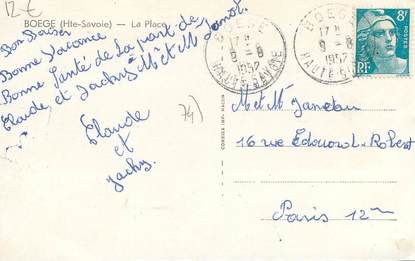 12€
BOEGE (Hte-Savoie) — La Place
Bon Baiser
Bonne Vacance
Bonne Santé de La part de
Claude et Jacky M et M Janot.
Claude
et
Jacky.
74)
BOEGE
17 H
9 - 8
1952
HAUTE-SAVOIE
BOEGE
17 H
9 - 8
1952
HAUTE-
8F
POSTES
RF
M et M
16 rue Édouard-Robert
Paris 12